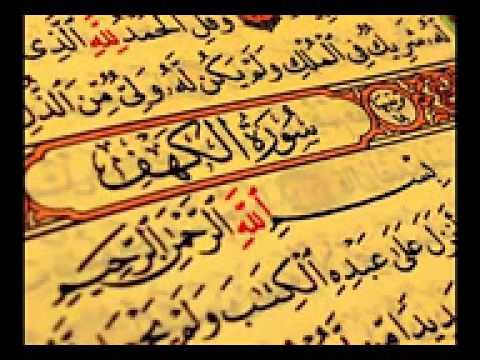 وَقُلِ ٱلْحَمْدُ لِلَّهِ ٱلَّذِى
لَّهُۥ شَرِيكٌ فِى ٱلْمُلْكِ وَلَمْ يَكُن لَّهُۥ وَلِىٌّ مِّنَ ٱلذُّلِّ
سُورَةُ الْكَهْفِ
بِسْمِ ٱللَّهِ ٱلرَّحْمَٰنِ ٱلرَّحِيمِ
نزَلَ عَلَىٰ عَبْدِهِ ٱلْكِتَٰبَ وَلَمْ